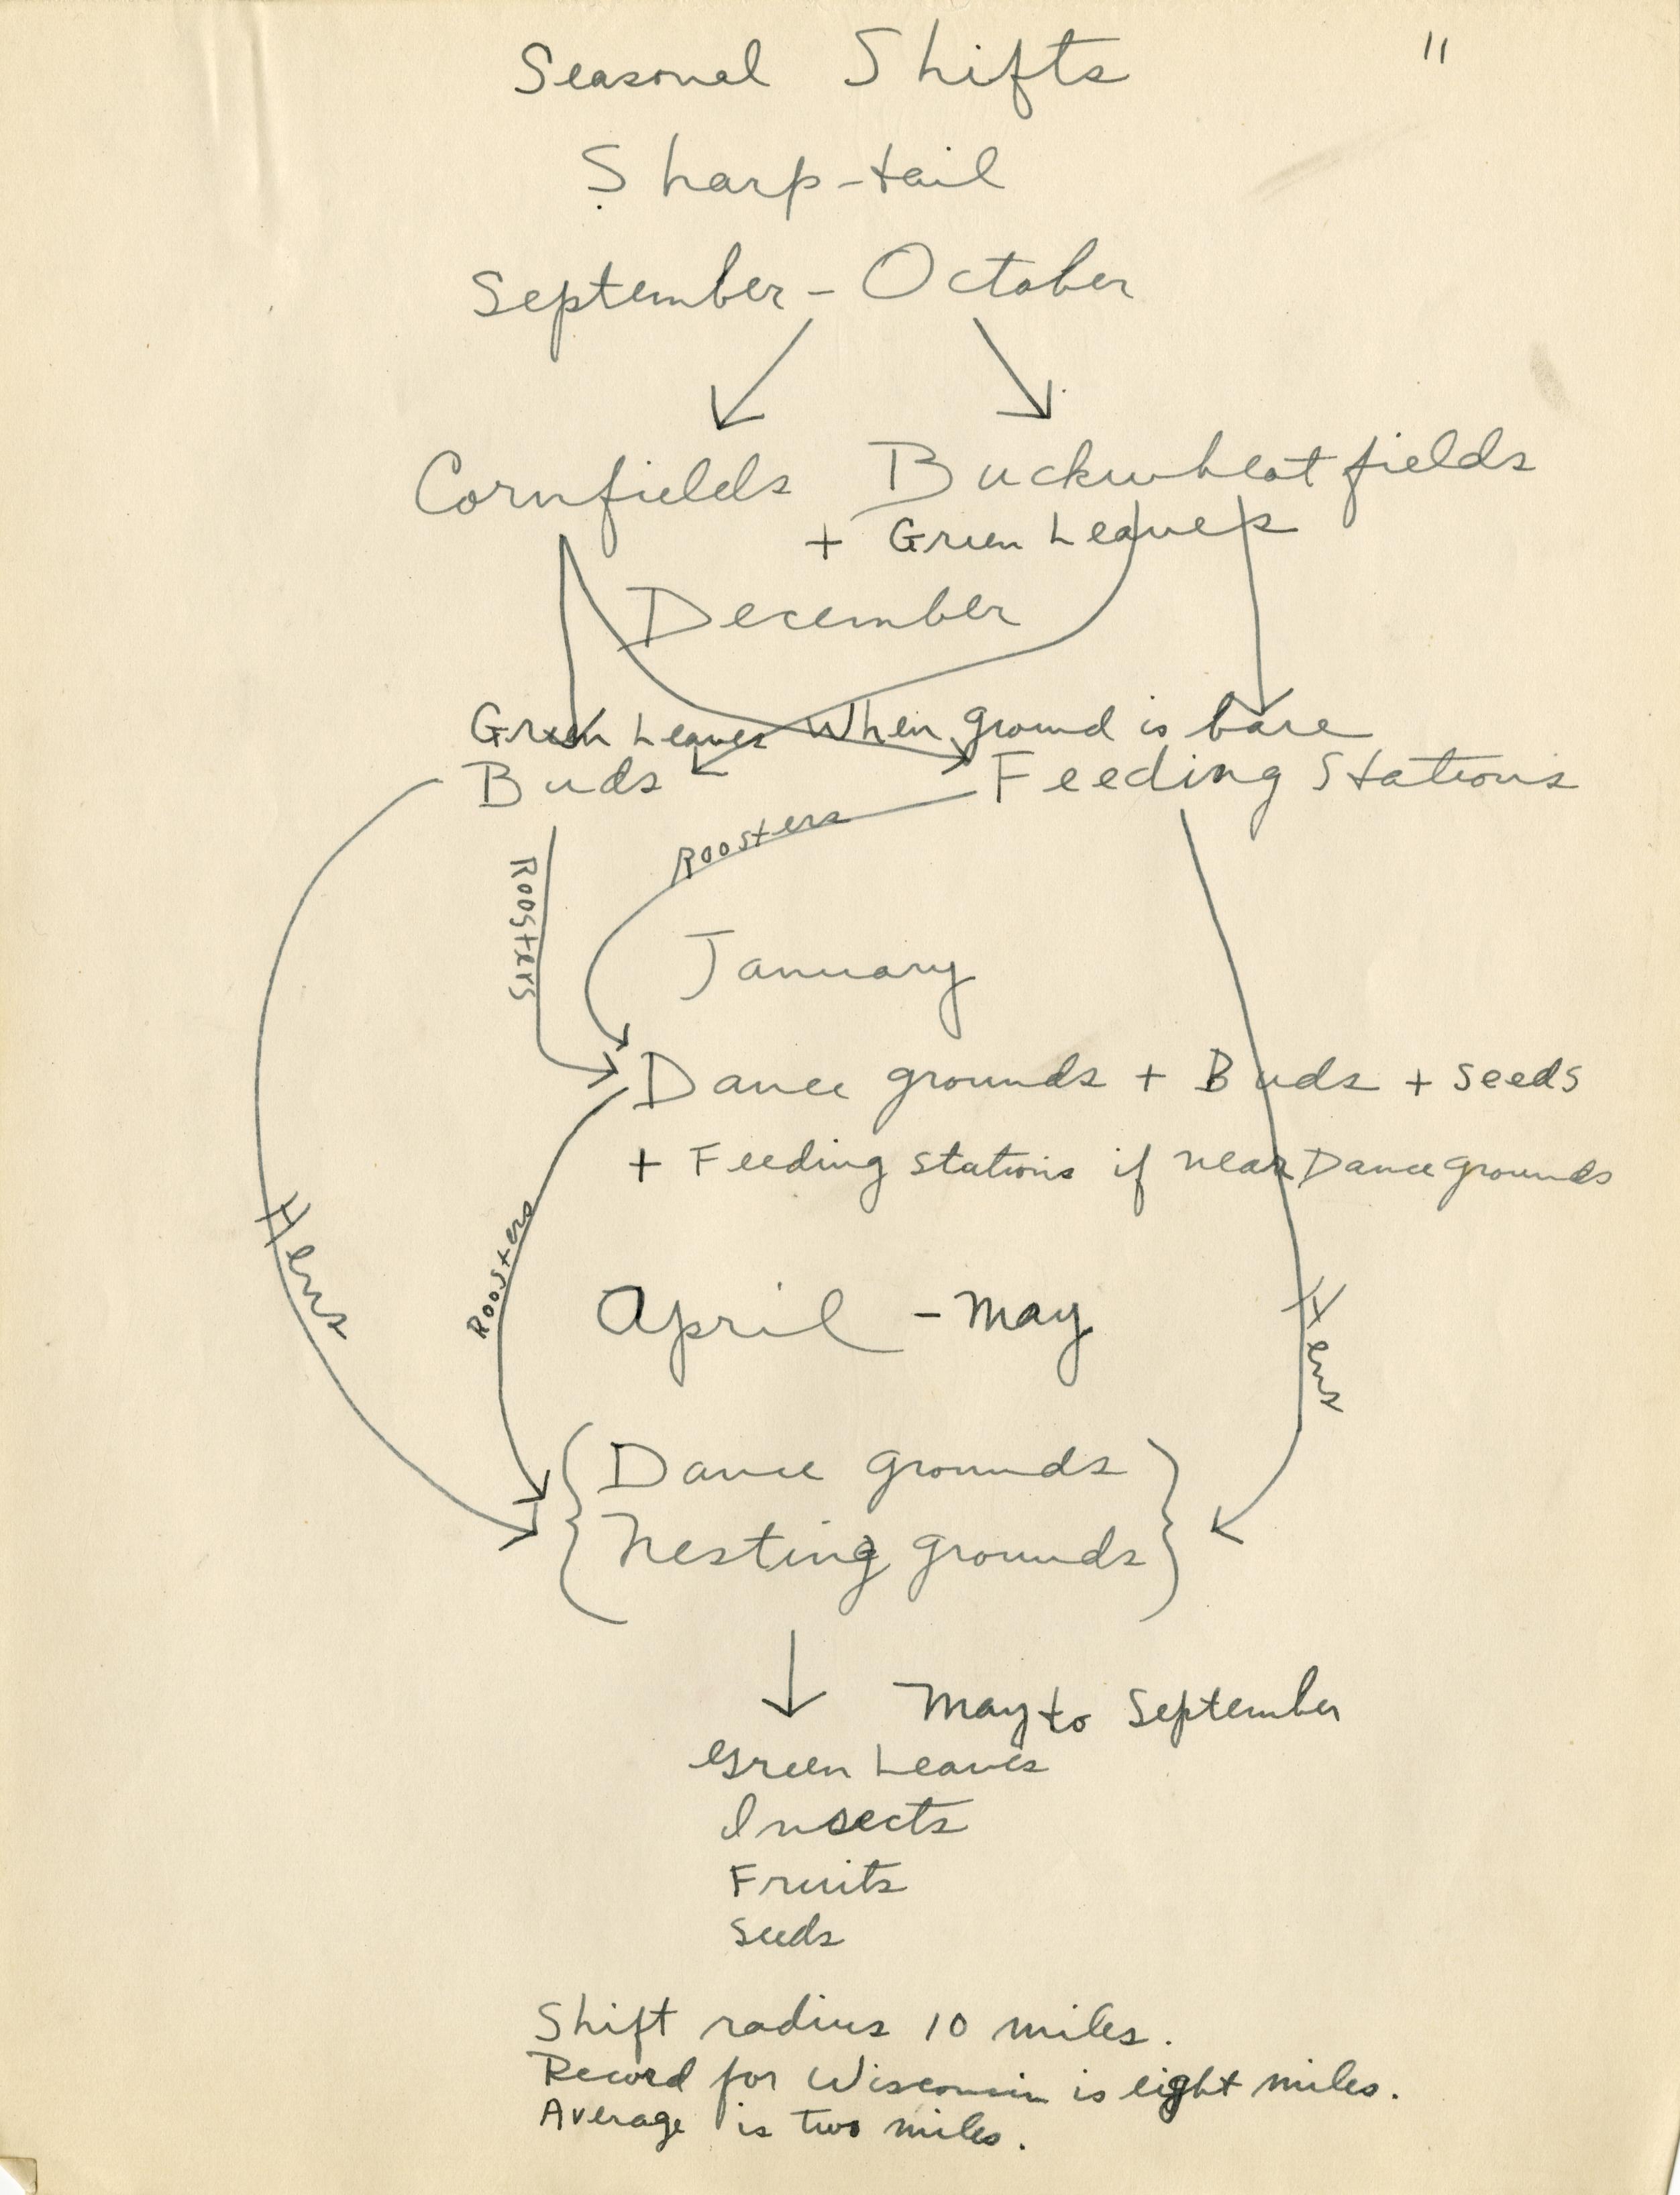 11
Seasonal Shifts
Sharp-tail
September - October
Cornfields Buckwheat fields
+ Green Leaves
December
Green Leaves When ground is bare
Buds Feeding Stations
Roosters
Roosters
January
Dance grounds + Buds + seeds
+ Feeding stations if near Dance grounds
Hens
Roosters
April - May
Hens
Dance grounds
Nesting grounds
May to September
Green Leaves
Insects
Fruits
Seeds
Shift radius 10 miles.
Record for Wisconsin is eight miles.
Average is two miles.